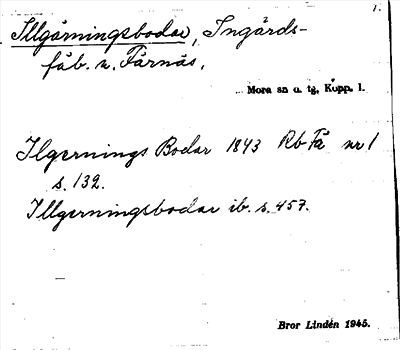 1.
Illgärningsbodar, Ingärds-
fäb. n. Färnäs.
Mora sn o. tg, Kopp. l.
Ilgernings Bodar 1843 Rb Fä nr 1
s. 132.
Illgerningsbodar ib. s. 457.
Bror Lindén 1945.